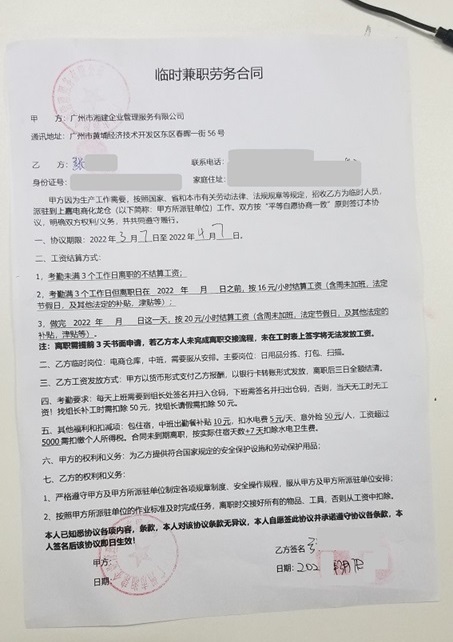 临时兼职劳务合同
甲 方：广州市湘建企业管理服务有限公司
通讯地址：广州市黄埔经济技术开发区东区春晖一街 56 号
乙 方：张 联系电话：
身份证号： 家庭住址：
甲方因为生产工作需要，按照国家、省和本市有关劳动法律、法规规章等规定，招收乙方为临时人员，
派驻到上嘉电商化龙仓（以下简称：甲方所派驻单位）工作。双方按“平等自愿协商一致”原则签订本协
议，明确双方权利/义务、并共同遵守履行。
一、协议期限：2022 年 3 月 7 日至 2022 年 4 月 7 日。
二、工资结算方式：
1，考勤未满 3 个工作日离职的不结算工资；
2，考勤满 3 个工作日但离职日在 2022 年 月 日之前，按 16 元/小时结算工资（含周末加班，法定
节假日，及其他法定的补贴，津贴等）；
3，做完 2022 年 月 日这一天，按 20 元/小时结算工资（含周末加班、法定节假日，及其他法定的
补贴，津贴等）。
注：离职需提前 3 天书面申请，若乙方本人未完成离职交接流程，未在工时表上签字将无法发放工资。
二、乙方临时岗位：电商仓库，中班，需要服从安排。主要岗位：日用品分拣、打包、扫描。
三、乙方工资发放方式：甲方以货币形式支付乙方报酬，以银行卡转账形式发放，离职后三日全额结清。
四、考勤要求：每天上班需要到组长处签名并扫入仓码，下班需签名并扫出仓码，否则，当天无工时无工
资！找组长补工时需扣除 50 元，找组长请假需扣除 50 元。
五、其他福利和扣减项：包住宿，中班出勤餐补贴 10元，扣水电费 5元/天，意外险 50元/人，工资超过
5000 需扣缴个人所得税。合同未到期离职，按实际住宿天数*7 天扣除水电卫生费。
六、甲方的权利和义务：为乙方提供符合国家规定的安全保护设施和劳动保护用品；
七、乙方的权利和义务：
1、严格遵守甲方及甲方所派驻单位制定各项规章制度、安全操作规程，服从甲方及甲方所派驻单位安排；
2、按照甲方所派驻单位的作业标准及时完成任务，离职时交接好所有的物品、工具，否则从工资中扣除。
本人已知悉协议各项内容，条款，本人对该协议条款无异议，本人自愿签此协议并承诺遵守协议各条款，本
人签名后该协议即日生效！
甲方： 乙方签名
日期： 日期：202